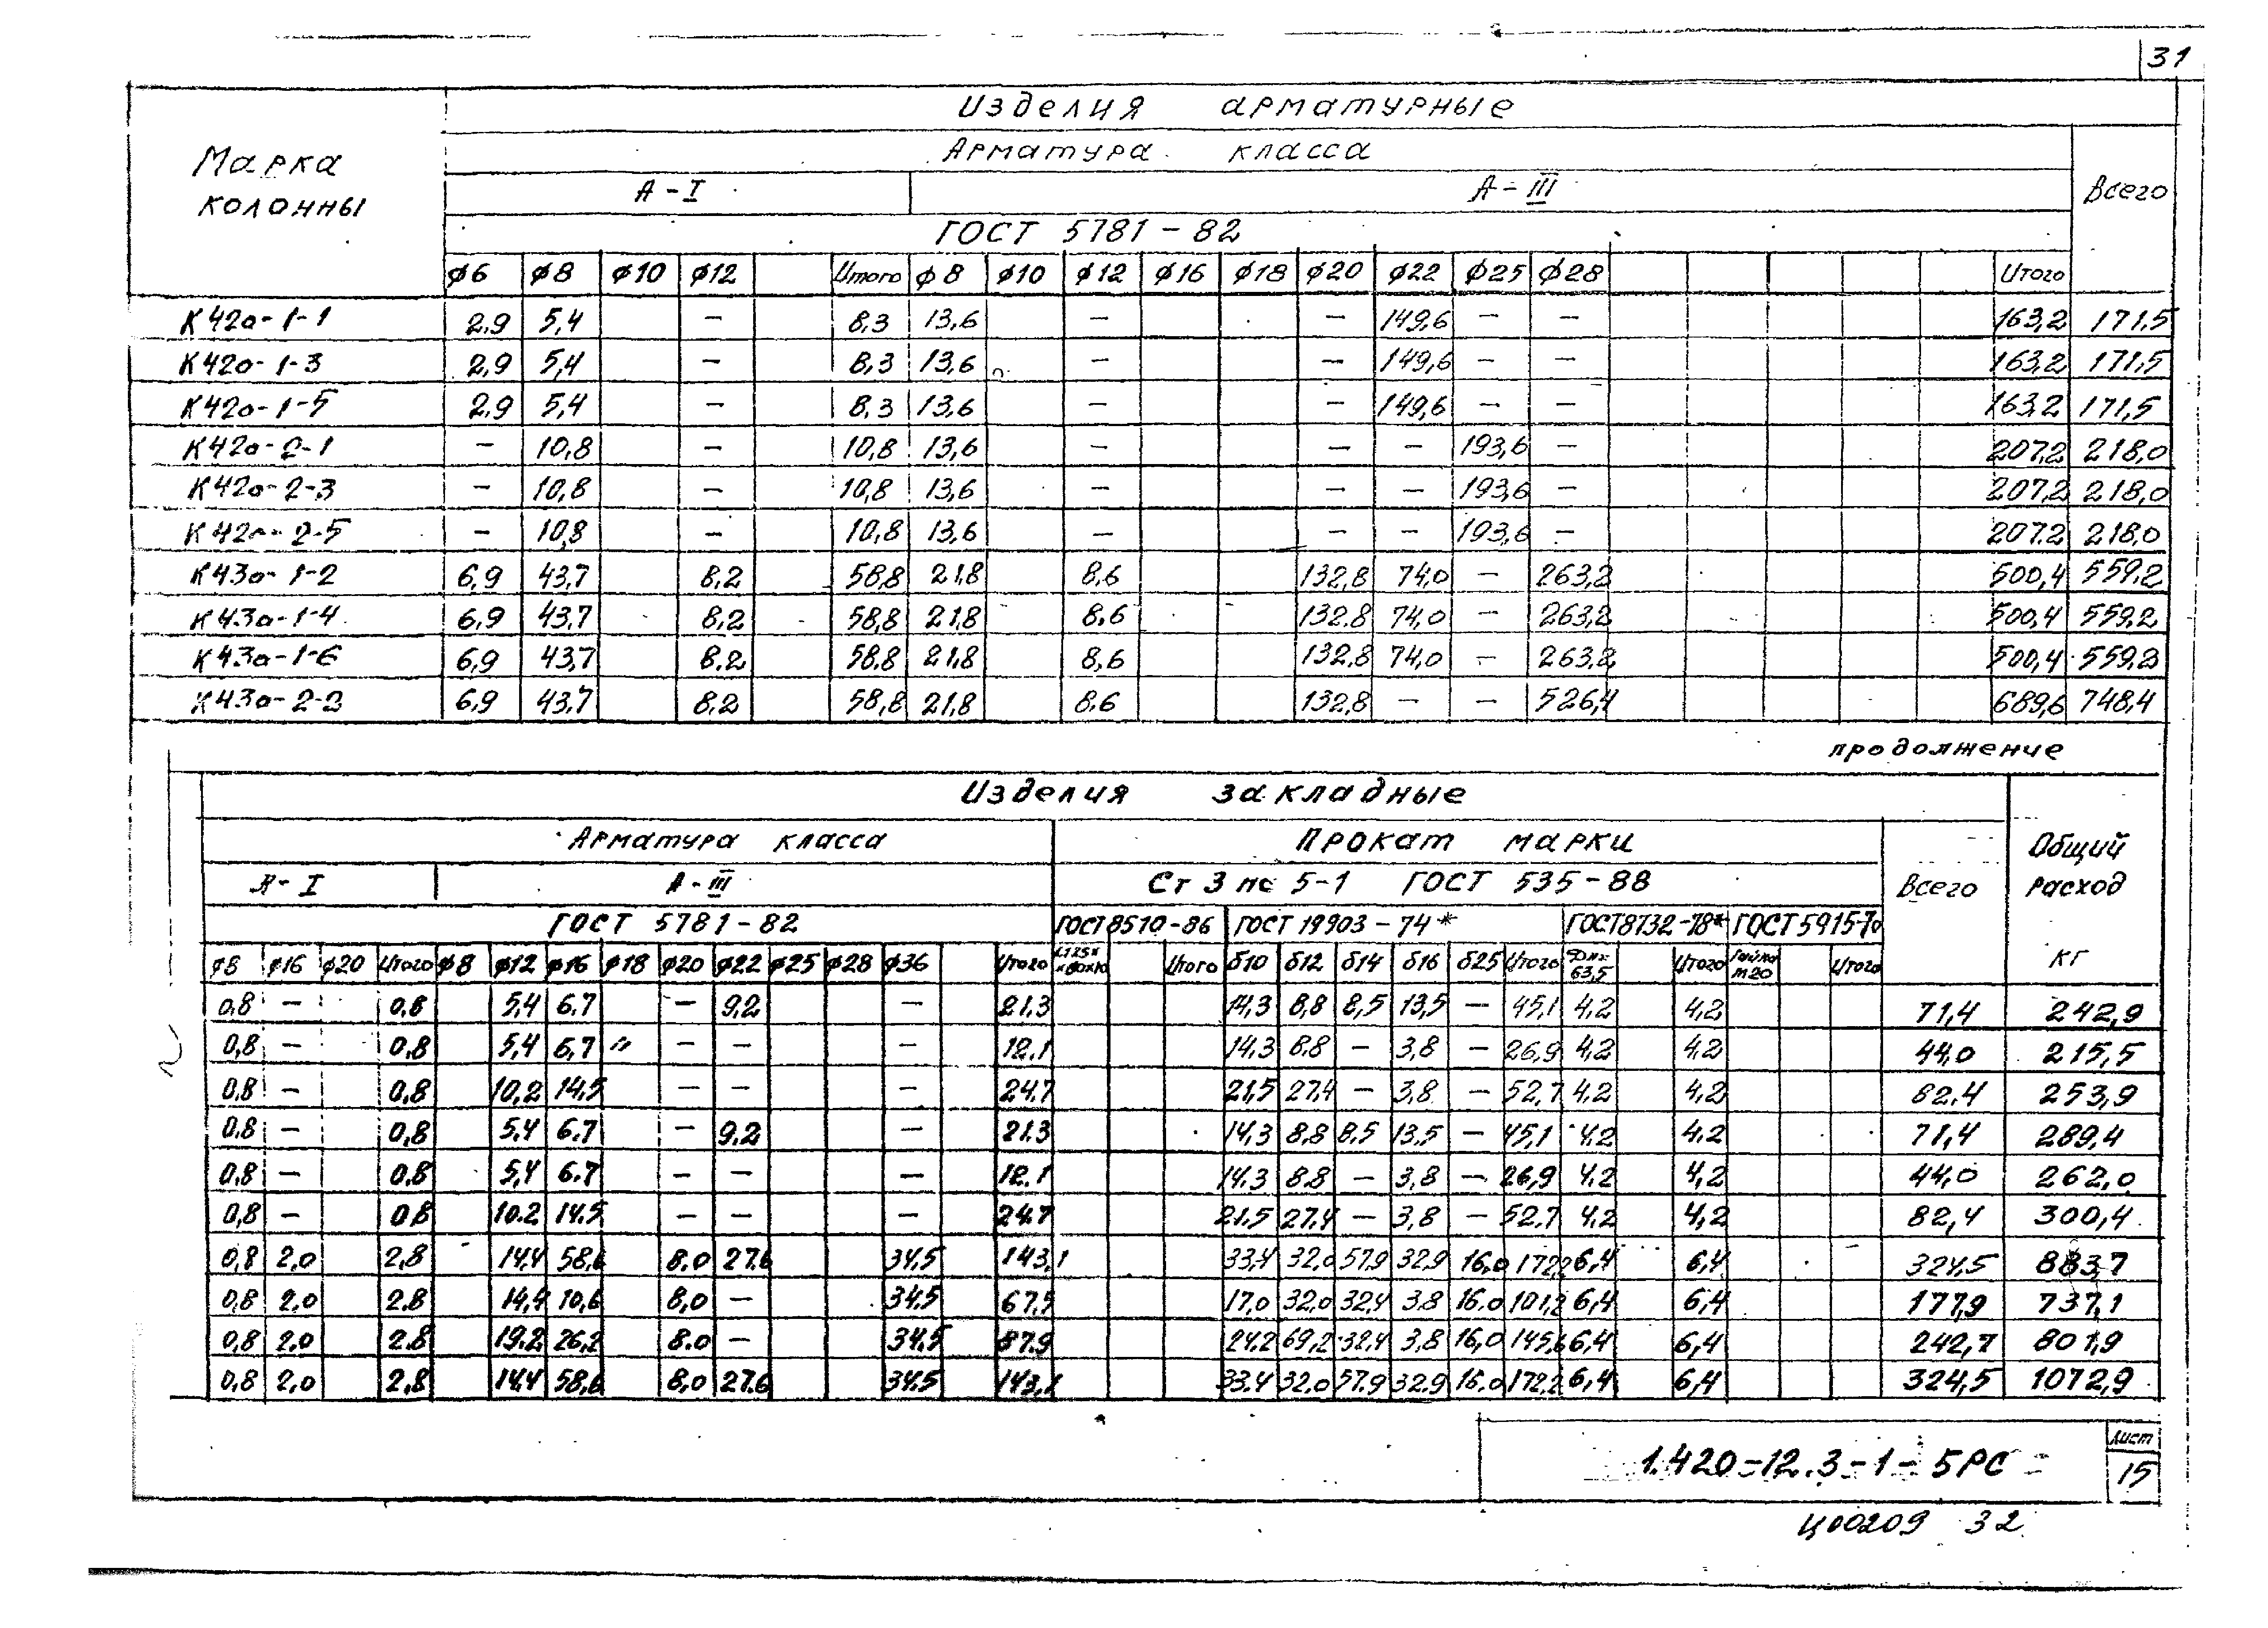 31
Изделия арматурные
Марка колонны
Арматура класса
Всего
А-I А-III
ГОСТ 5781-82
ϕ6 ϕ8 ϕ10 ϕ12 Итого ϕ8 ϕ10 ϕ12 ϕ16 ϕ18 ϕ20 ϕ22 ϕ25 ϕ28 Итого
К42а-1-1 2,9 5,4 — 8,3 13,6 — — 149,6 — — 163,2 171,5
К42а-1-3 2,9 5,4 — 8,3 13,6 — — 149,6 — — 163,2 171,5
К42а-1-5 2,9 5,4 — 8,3 13,6 — — 149,6 — — 163,2 171,5
К42а-2-1 — 10,8 — 10,8 13,6 — — — 193,6 — 207,2 218,0
К42а-2-3 — 10,8 — 10,8 13,6 — — — 193,6 — 207,2 218,0
К42а-2-5 — 10,8 — 10,8 13,6 — — — 193,6 — 207,2 218,0
К43а-1-2 6,9 43,7 8,2 58,8 21,8 8,6 132,8 74,0 — 263,2 500,4 559,2
К43а-1-4 6,9 43,7 8,2 58,8 21,8 8,6 132,8 74,0 — 263,2 500,4 559,2
К43а-1-6 6,9 43,7 8,2 58,8 21,8 8,6 132,8 74,0 — 263,2 500,4 559,2
К43а-2-2 6,9 43,7 8,2 58,8 21,8 8,6 132,8 — — 526,4 689,6 748,4
продолжение
Изделия закладные
Общий расход кг
Арматура класса Прокат марки
Всего
А-I А-III Ст 3 пс 5-1 ГОСТ 535-88
ГОСТ 5781-82 ГОСТ 8510-86 ГОСТ 19903-74* ГОСТ 8732-78* ГОСТ 5915-70
ϕ8 ϕ16 ϕ20 Итого ϕ8 ϕ12 ϕ16 ϕ18 ϕ20 ϕ22 ϕ25 ϕ28 ϕ36 Итого Итого δ10 δ12 δ14 δ16 δ25 Итого 63,5 Итого Гайка М20 Итого
0,8 — 0,8 5,4 6,7 — 9,2 — 21,3 14,3 8,8 8,5 13,5 — 45,1 4,2 4,2 71,4 242,9
0,8 — 0,8 5,4 6,7 — — — 12,1 14,3 8,8 — 3,8 — 26,9 4,2 4,2 44,0 215,5
0,8 — 0,8 10,2 14,5 — — — 24,7 21,5 27,4 — 3,8 — 52,7 4,2 4,2 82,4 253,9
0,8 — 0,8 5,4 6,7 — 9,2 — 21,3 14,3 8,8 8,5 13,5 — 45,1 4,2 4,2 71,4 289,4
0,8 — 0,8 5,4 6,7 — — — 12,1 14,3 8,8 — 3,8 — 26,9 4,2 4,2 44,0 262,0
0,8 — 0,8 10,2 14,5 — — — 24,7 21,5 27,4 — 3,8 — 52,7 4,2 4,2 82,4 300,4
0,8 2,0 2,8 14,4 58,6 8,0 27,6 34,5 143,1 33,4 32,0 57,9 32,9 16,0 172,2 6,4 6,4 324,5 883,7
0,8 2,0 2,8 14,4 10,6 8,0 — 34,5 67,5 17,0 32,0 32,4 3,8 16,0 101,2 6,4 6,4 177,9 737,1
0,8 2,0 2,8 19,2 26,2 8,0 — 34,5 87,9 24,2 69,2 32,4 3,8 16,0 145,6 6,4 6,4 242,7 801,9
0,8 2,0 2,8 14,4 58,6 8,0 27,6 34,5 143,1 33,4 32,0 57,9 32,9 16,0 172,2 6,4 6,4 324,5 1072,9
1.420-12.3-1-5РС
Лист 15
Ц00209 32